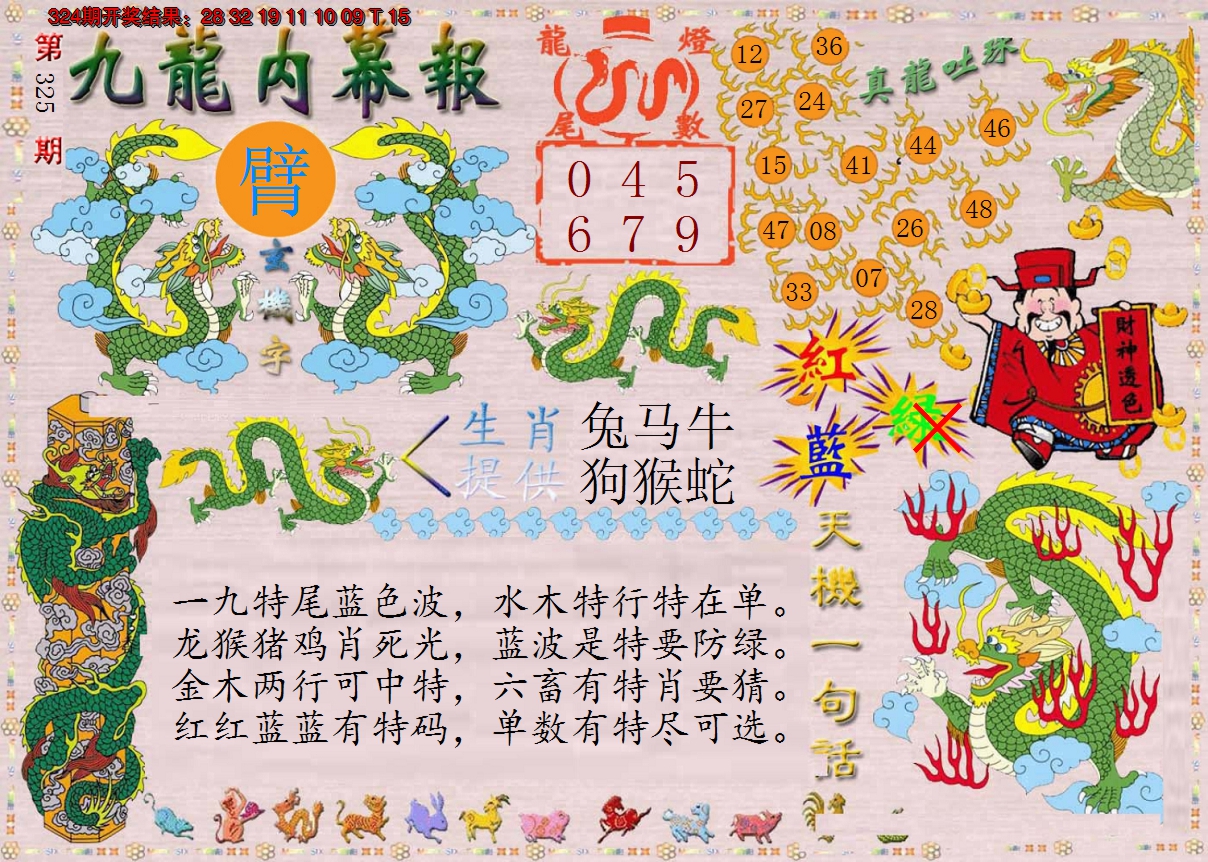 324期开奖结果：28 32 19 11 10 09 T 15
第325期
九龍内幕報
臂
玄機字
龍燈尾數
0 4 5
6 7 9
真龍吐珠
12 36
27 24
15 41 44 46
47 08 26 48
33 07 28
紅
綠
藍
財神透色
生肖提供
兔马牛
狗猴蛇
天機一句话
一九特尾蓝色波，水木特行特在单。
龙猴猪鸡肖死光，蓝波是特要防绿。
金木两行可中特，六畜有特肖要猜。
红红蓝蓝有特码，单数有特尽可选。